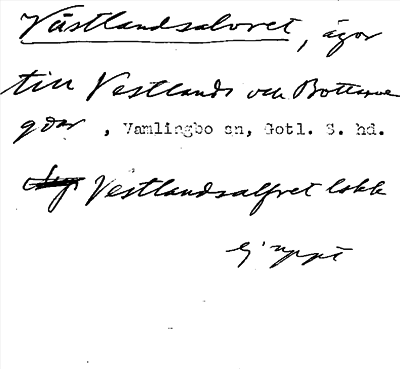 Västlandsalvret, ägor
till Vestlands och Bottarve
gdar, Vamlingbo sn, Gotl. S. hd.
Vestlandsalfret lokk
ej uppt